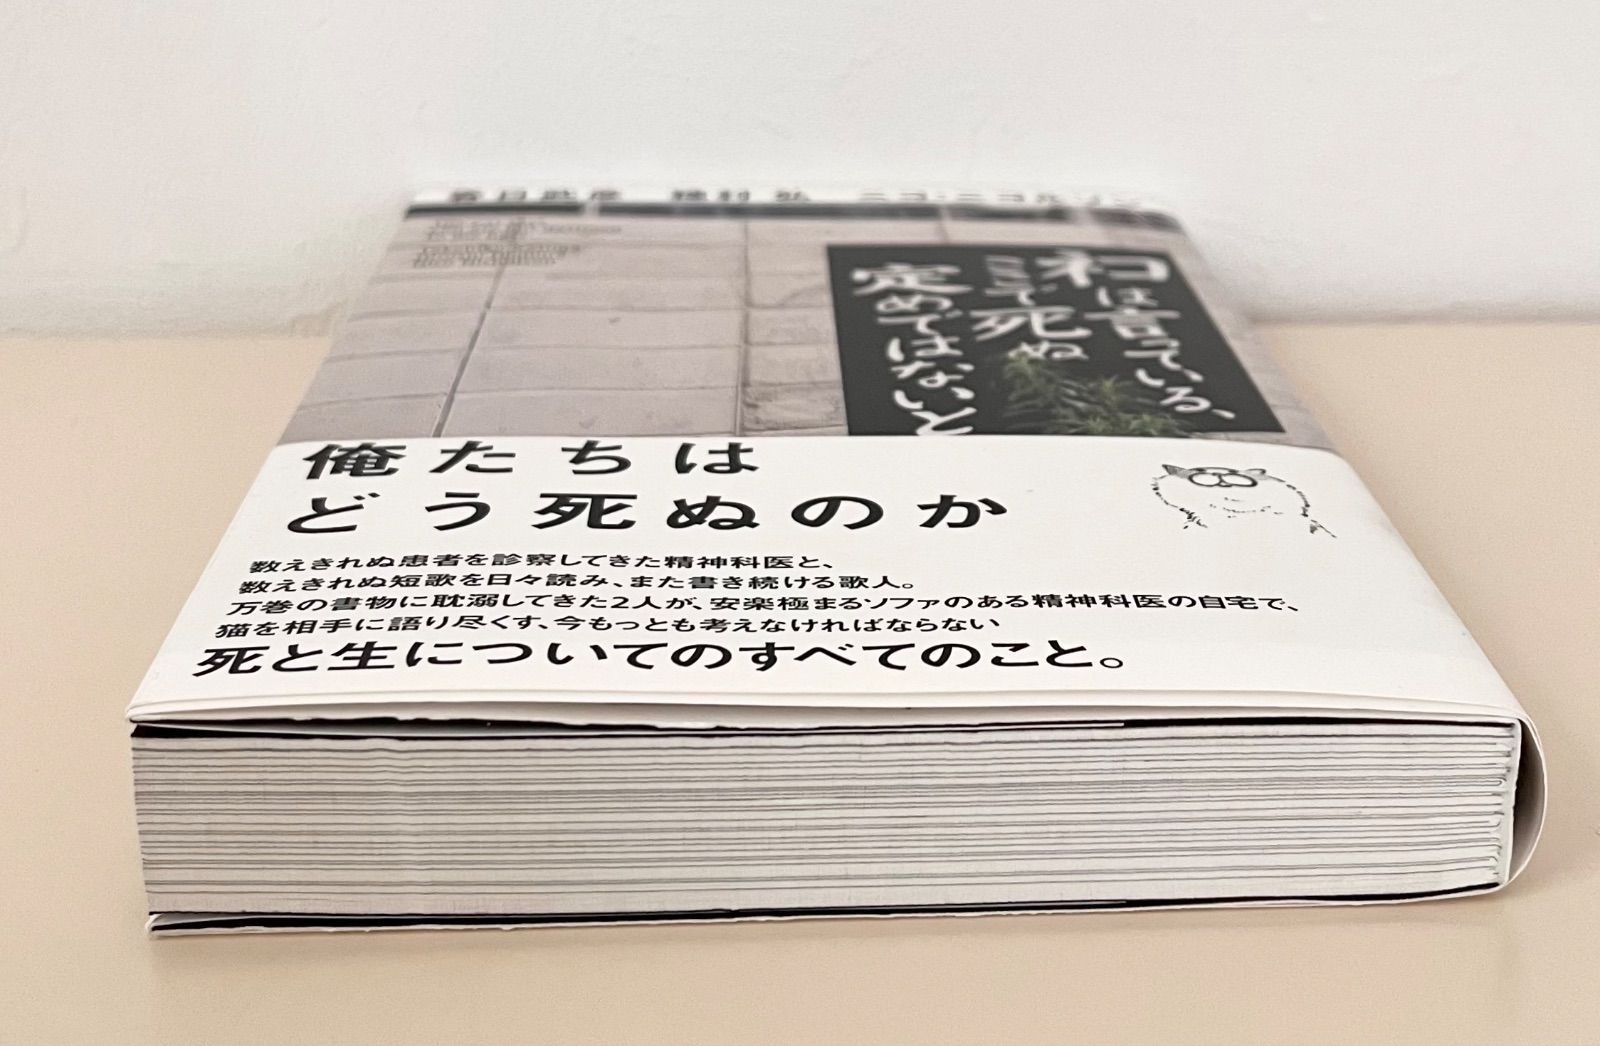 春日武彦 穂村弘 ニコ・ニコルソン
ネコは言っている、
ここで死ぬ
定めではないと
俺たちは
どう死ぬのか
数えきれぬ患者を診察してきた精神科医と、
数えきれぬ短歌を日々読み、また書き続ける歌人。
万巻の書物に耽溺してきた2人が、安楽極まるソファのある精神科医の自宅で、
猫を相手に語り尽くす、今もっとも考えなければならない
死と生についてのすべてのこと。